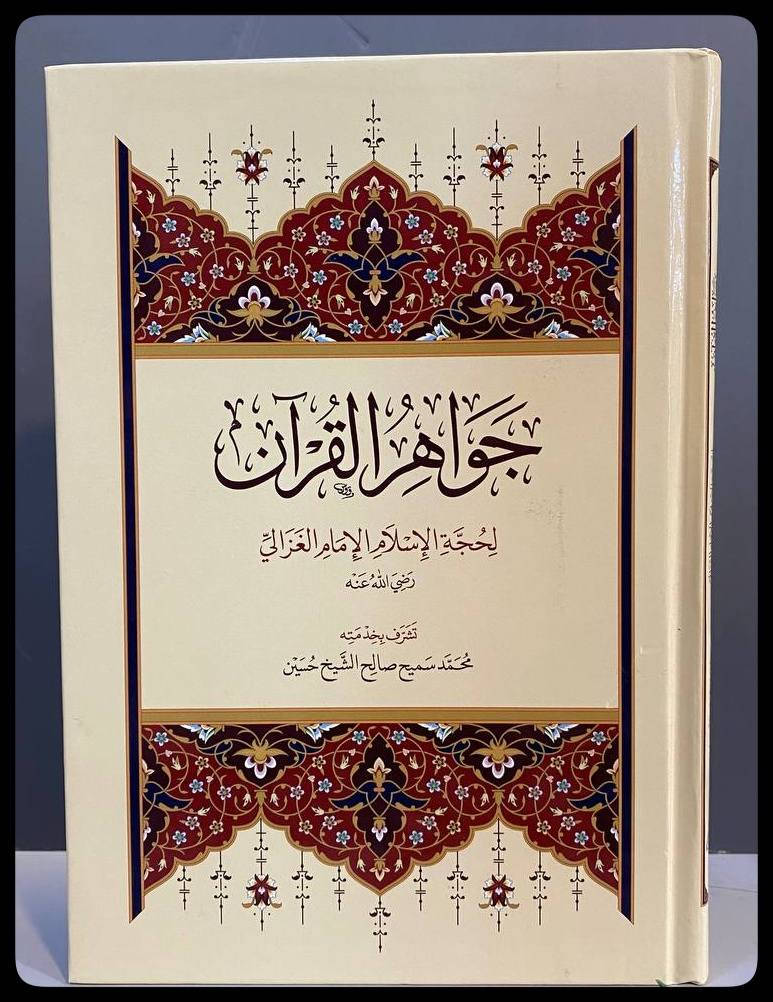 جَوَاهِرُ الْقُرْآن
لِحُجَّةِ الإِسْلَامِ الإِمَامِ الغَزَالِيِّ
رَضِيَ اللهُ عَنْه
تَشَرَّفَ بِخِدْمَتِه
مُحَمَّد سَمِيح صَالِح الشَّيْخ حُسَيْن